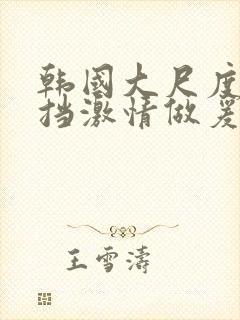 韩國大尺度
挡激情做爰
王雪濤